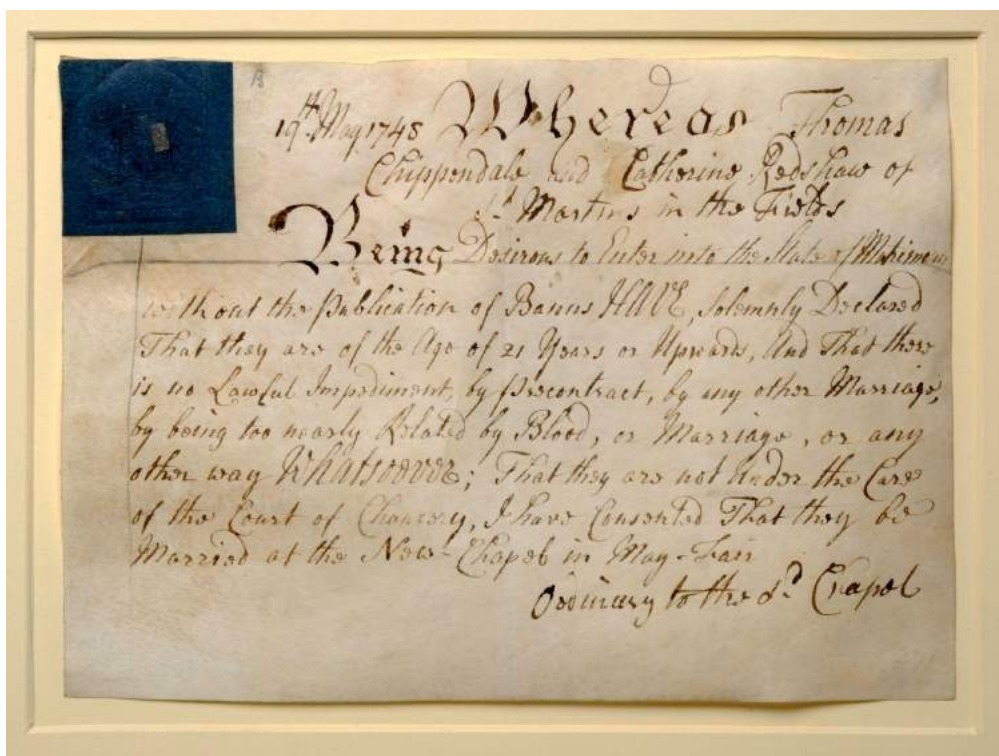 19th. May 1748 Whereas Thomas
Chippendale and Catherine Redshaw of
St. Martins in the Fields
Being Desirous to Enter into the State of Matrimony
without the Publication of Banns HAVE, Solemnly Declared
That they are of the Age of 21 Years or Upwards, And That there
is no Lawful Impediment, by Precontract, by any other Marriage,
by being too nearly Related by Blood, or Marriage, or any
other way Whatsoever; That they are not Under the Care
of the Court of Chancery, I have Consented That they be
Married at the New-Chapel in May-Fair
Ordinary to the sd. Chapel